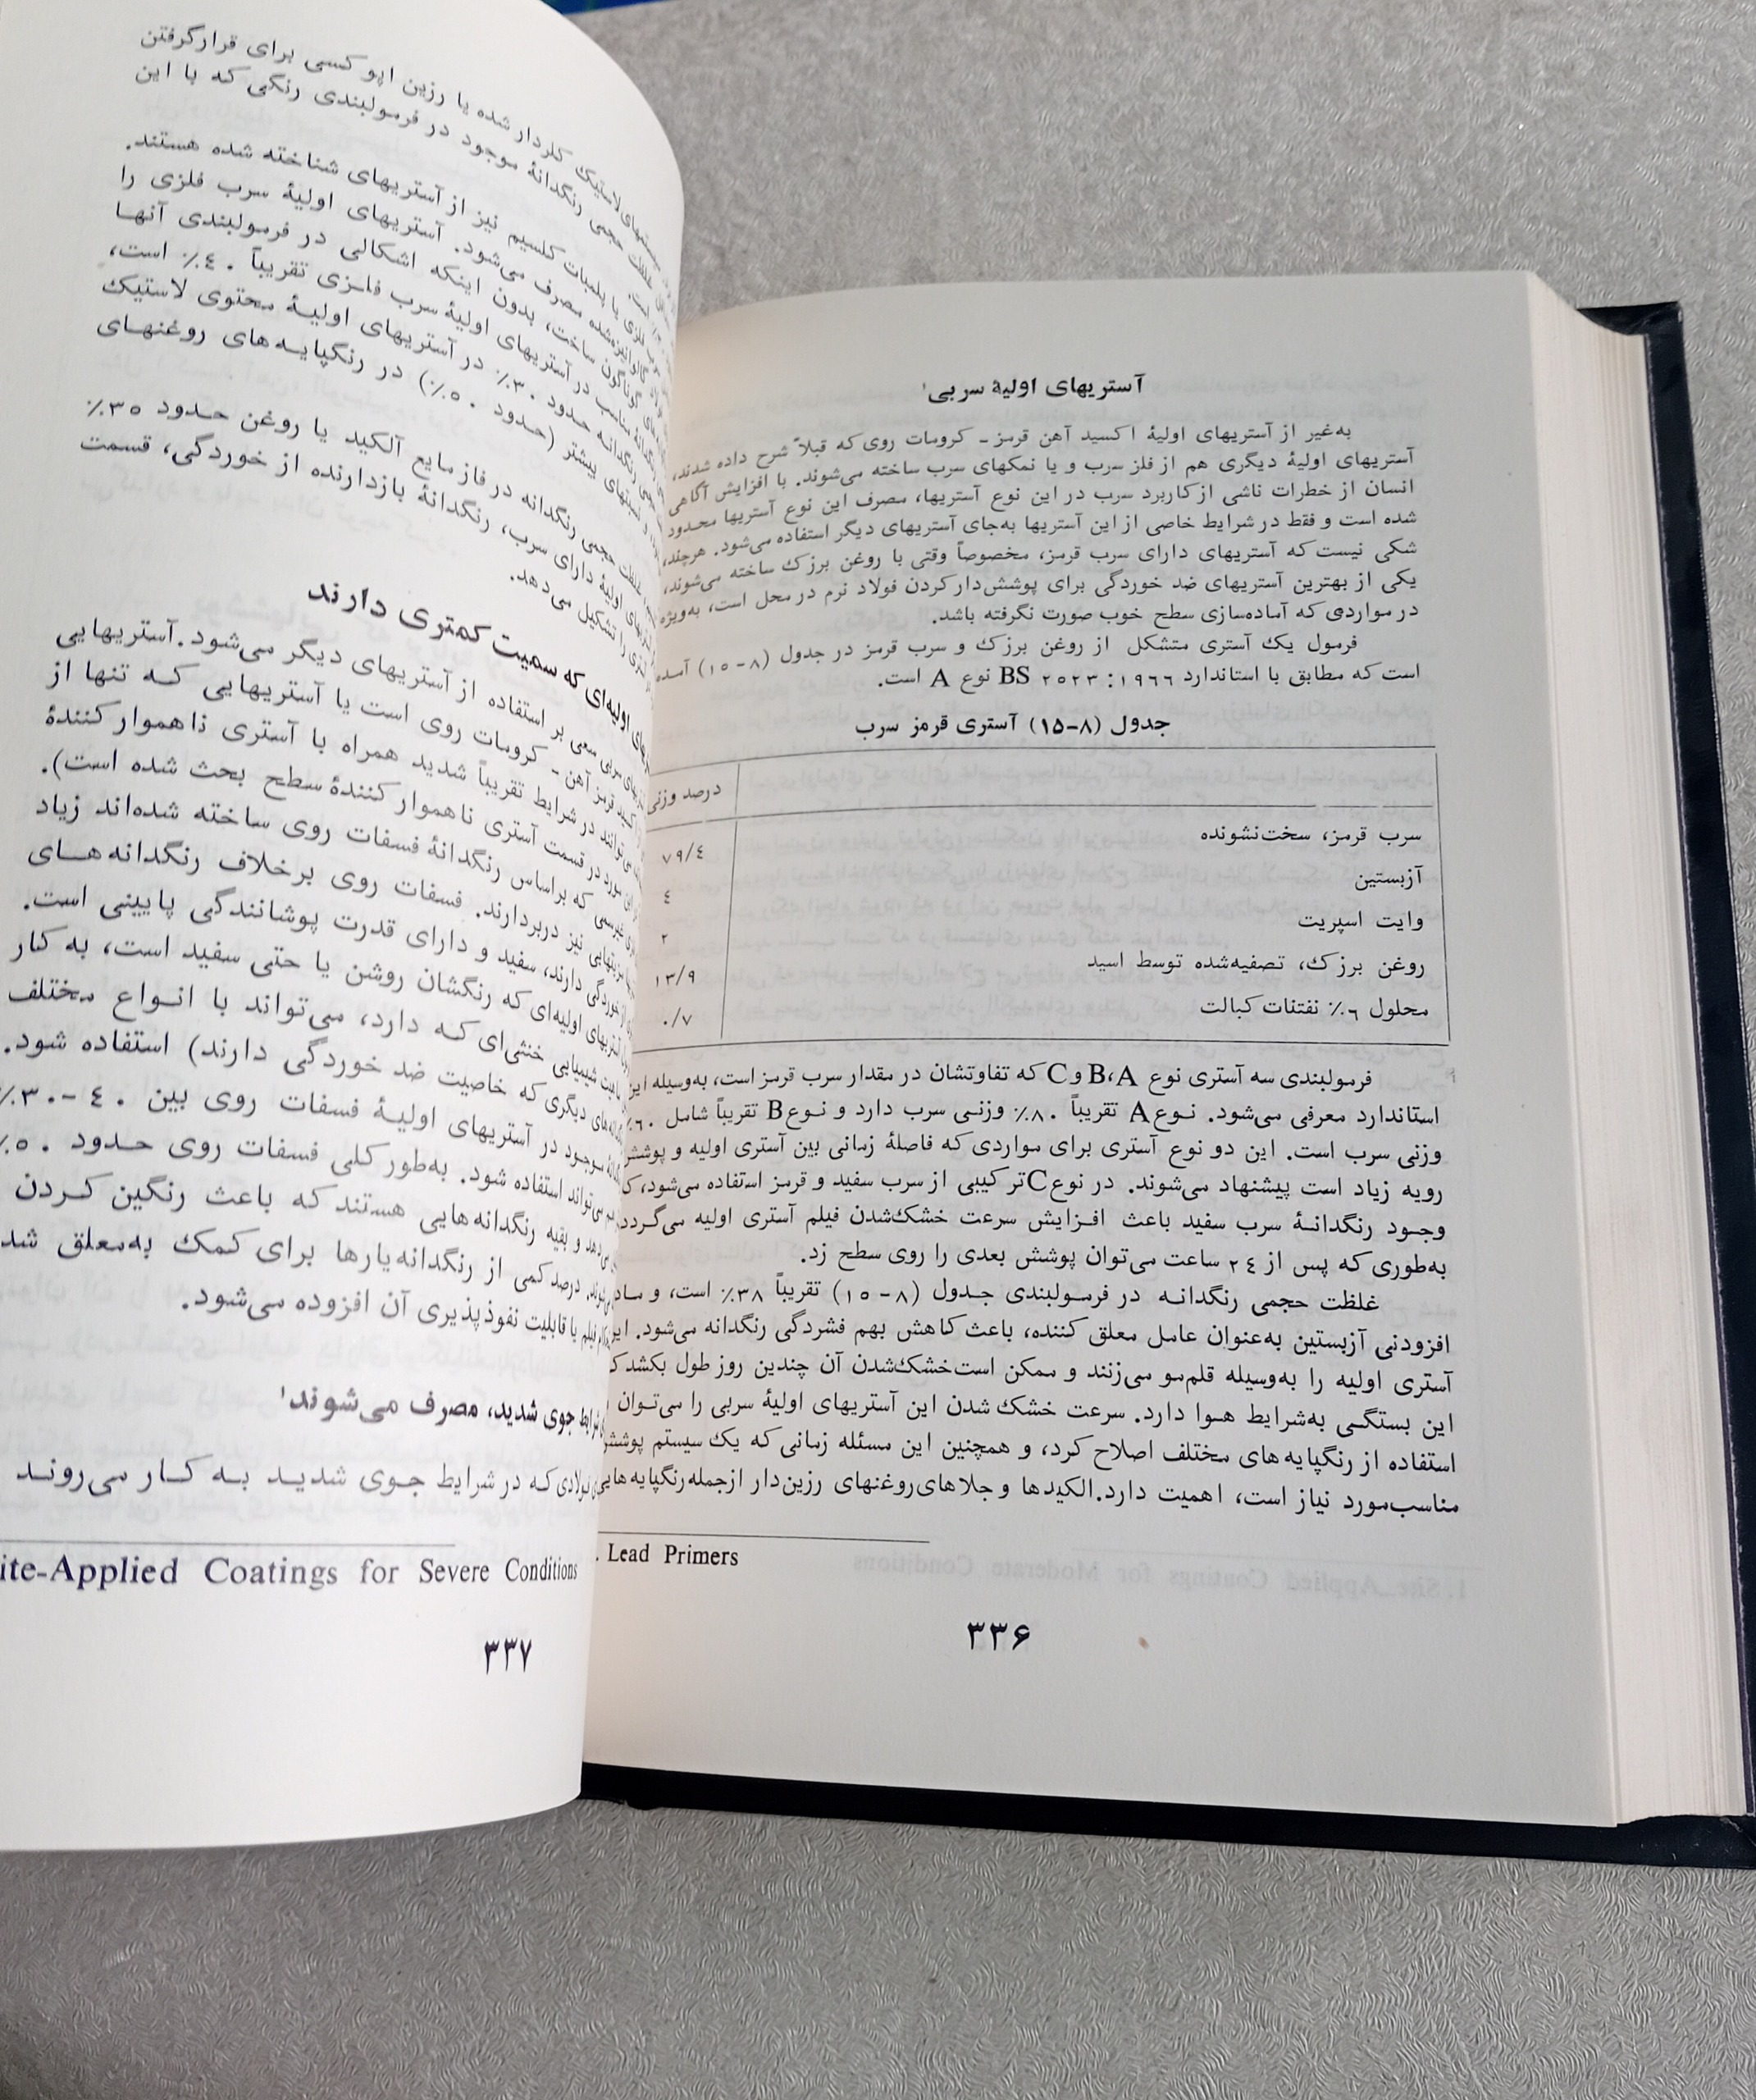 آستریهای اولیهٔ سربی¹
به‌غیر از آستریهای اولیهٔ اکسید آهن قرمز - کرومات روی که قبلاً شرح داده شدند،
آستریهای اولیهٔ دیگری هم از فلز سرب و یا نمکهای سرب ساخته می‌شوند. با افزایش آگاهی
انسان از خطرات ناشی از کاربرد سرب در این نوع آستریها، مصرف این نوع آستریها محدود
شده است و فقط در شرایط خاصی از این آستریها به‌جای آستریهای دیگر استفاده می‌شود. هرچند،
شکی نیست که آستریهای دارای سرب قرمز، مخصوصاً وقتی با روغن برزک ساخته می‌شوند،
یکی از بهترین آستریهای ضد خوردگی برای پوشش‌دار کردن فولاد نرم در محل است، به‌ویژه
در مواردی که آماده‌سازی سطح خوب صورت نگرفته باشد.
فرمول یک آستری متشکل از روغن برزک و سرب قرمز در جدول (۸-۱۵) آمده
است که مطابق با استاندارد BS ۲۵۲۳:۱۹۶۶ نوع A است.
جدول (۸-۱۵) آستری قرمز سرب
درصد وزنی
سرب قرمز، سخت‌نشونده ۷۹/۴
آزبستین ۴
وایت اسپریت ۲
روغن برزک، تصفیه‌شده توسط اسید ۱۳/۹
محلول ۶٪ نفتنات کبالت ۰/۷
فرمولبندی سه آستری نوع B،A و C که تفاوتشان در مقدار سرب قرمز است، به‌وسیله این
استاندارد معرفی می‌شود. نوع A تقریباً ۸۰٪ وزنی سرب دارد و نوع B تقریباً شامل ۶۰٪
وزنی سرب است. این دو نوع آستری برای مواردی که فاصلهٔ زمانی بین آستری اولیه و پوشش
رویه زیاد است پیشنهاد می‌شوند. در نوع C ترکیبی از سرب سفید و قرمز استفاده می‌شود،
وجود رنگدانهٔ سرب سفید باعث افزایش سرعت خشک‌شدن فیلم آستری اولیه می‌گردد
به‌طوری که پس از ۲۴ ساعت می‌توان پوشش بعدی را روی سطح زد.
غلظت حجمی رنگدانه در فرمولبندی جدول (۸-۱۵) تقریباً ۳۸٪ است، و
افزودنی آزبستین به‌عنوان عامل معلق کننده، باعث کاهش بهم فشردگی رنگدانه می‌شود.
آستری اولیه را به‌وسیله قلم‌مو می‌زنند و ممکن است خشک‌شدن آن چندین روز طول بکشد
این بستگی به‌شرایط هوا دارد. سرعت خشک شدن این آستریهای اولیهٔ سربی را می‌توان
استفاده از رنگپایه‌های مختلف اصلاح کرد، و همچنین این مسئله زمانی که یک سیستم پوشش
مناسب‌مورد نیاز است، اهمیت دارد. الکیدها و جلاهای روغنهای رزین‌دار ازجمله رنگپایه‌هایی
. Lead Primers
۳۳۶
لاستیک کلردار شده یا رزین اپوکسی برای قرارگرفتن
حجمی رنگدانهٔ موجود در فرمولبندی رنگی که با این
است.
یا پلمبات کلسیم نیز از آستریهای شناخته شده هستند.
مصرف می‌شود. آستریهای اولیهٔ سرب فلزی را
گوناگون ساخت، بدون اینکه اشکالی در فرمولبندی آنها
مناسب در آستریهای اولیهٔ سرب فلزی تقریباً ۴۰٪ است،
رنگدانه حدود ۳۰٪ در آستریهای اولیهٔ محتوی لاستیک
بیشتر (حدود ۵۰٪) در رنگپایه‌های روغنهای
حجمی رنگدانه در فاز مایع آلکید یا روغن حدود ۳۵٪
اولیهٔ دارای سرب، رنگدانهٔ بازدارنده از خوردگی، قسمت
را تشکیل می‌دهد.
اولیه‌ای که سمیت کمتری دارند
سربی سعی بر استفاده از آستریهای دیگر می‌شود. آستریهایی
قرمز آهن - کرومات روی است یا آستریهایی که تنها از
در شرایط تقریباً شدید همراه با آستری ناهموار کنندهٔ
مورد در قسمت آستری ناهموار کنندهٔ سطح بحث شده است).
که براساس رنگدانهٔ فسفات روی ساخته شده‌اند زیاد
نیز دربردارند. فسفات روی برخلاف رنگدانه‌های
خوردگی دارند، سفید و دارای قدرت پوشانندگی پایینی است.
آستریهای اولیه‌ای که رنگشان روشن یا حتی سفید است، به کار
شیمیایی خنثی‌ای که دارد، می‌تواند با انواع مختلف
دیگری که خاصیت ضد خوردگی دارند) استفاده شود.
موجود در آستریهای اولیهٔ فسفات روی بین ۴۰-۳۰٪
می‌تواند استفاده شود. به‌طور کلی فسفات روی حدود ۵۰٪
و بقیه رنگدانه‌هایی هستند که باعث رنگین کردن
درصد کمی از رنگدانه‌یارها برای کمک به‌معلق
فیلم با قابلیت نفوذپذیری آن افزوده می‌شود.
شرایط جوی شدید، مصرف می‌شوند¹
فولادی که در شرایط جوی شدید به کار می‌روند
ite-Applied Coatings for Severe Conditions
۳۳۷